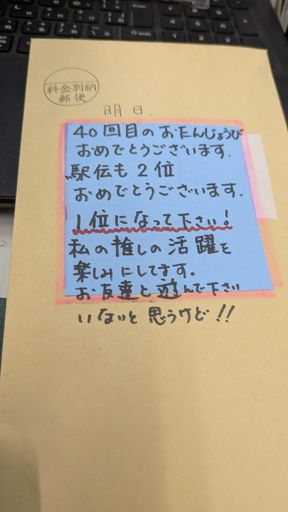 料金別納
郵便
明日
40回目のおたんじょうび
おめでとうございます.
駅伝も2位
おめでとうございます.
1位になって下さい!
私の推しの活躍を
楽しみにしてます。
お友達と遊んで下さい
いないと思うけど!!